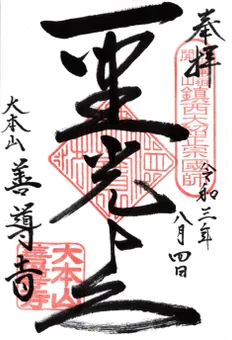 奉拝
開山鎮西大紹正宗国師
聖光上人
令和三年
八月四日
大本山
善導寺
大本山
善導寺